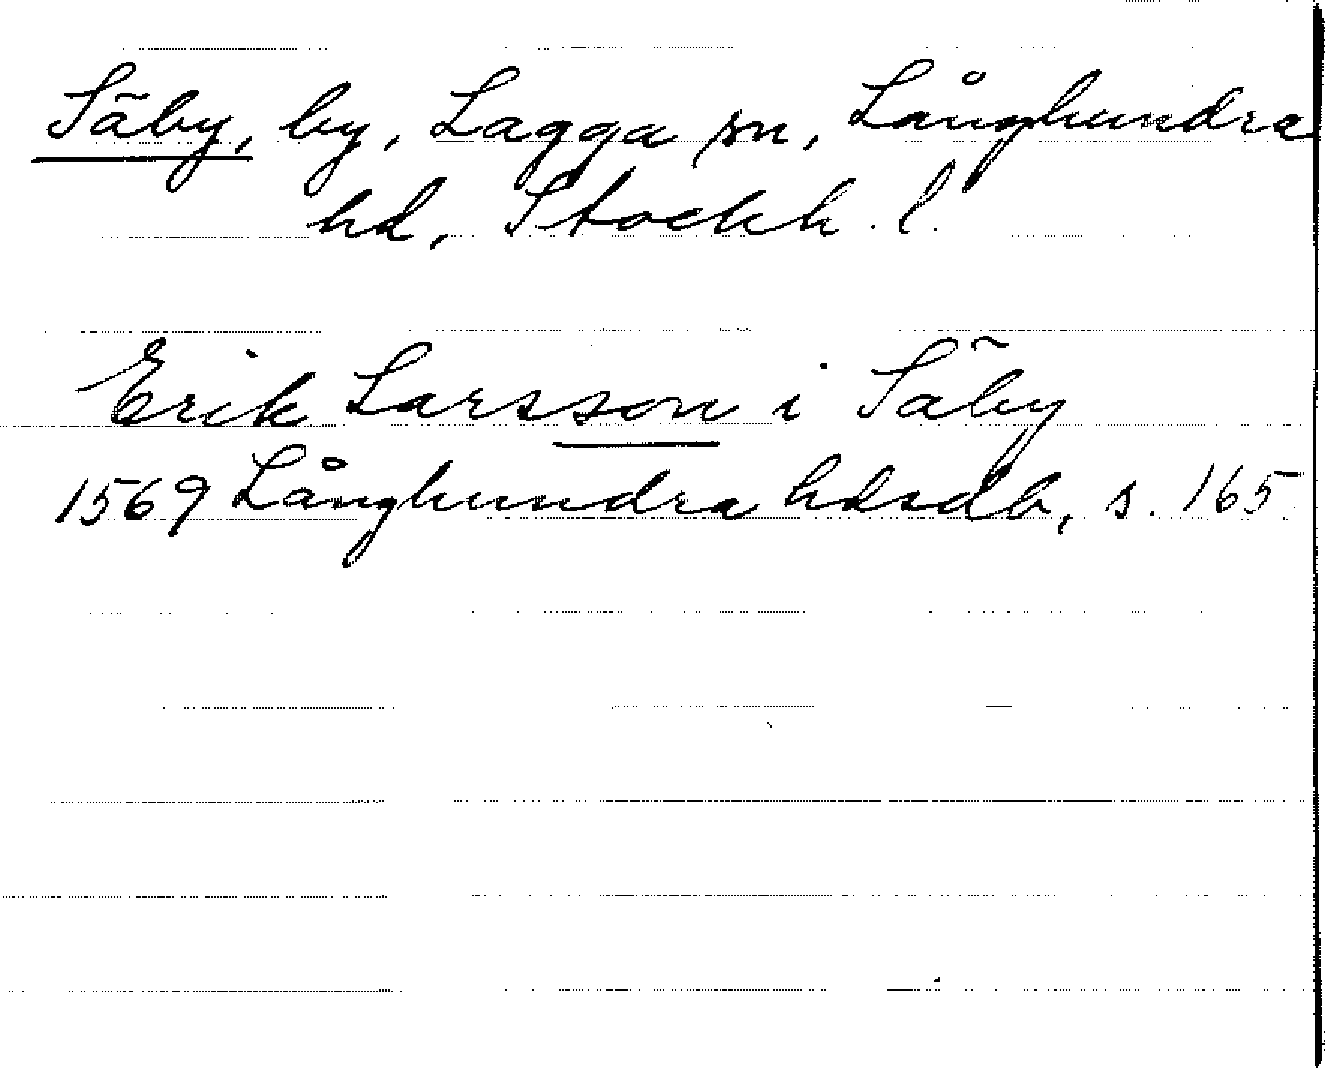 Säby, by, Lagga sn, Långhundra
hd, Stockh. l.
Erik Larsson i Säby
1569 Långhundra hdsdb, s. 165